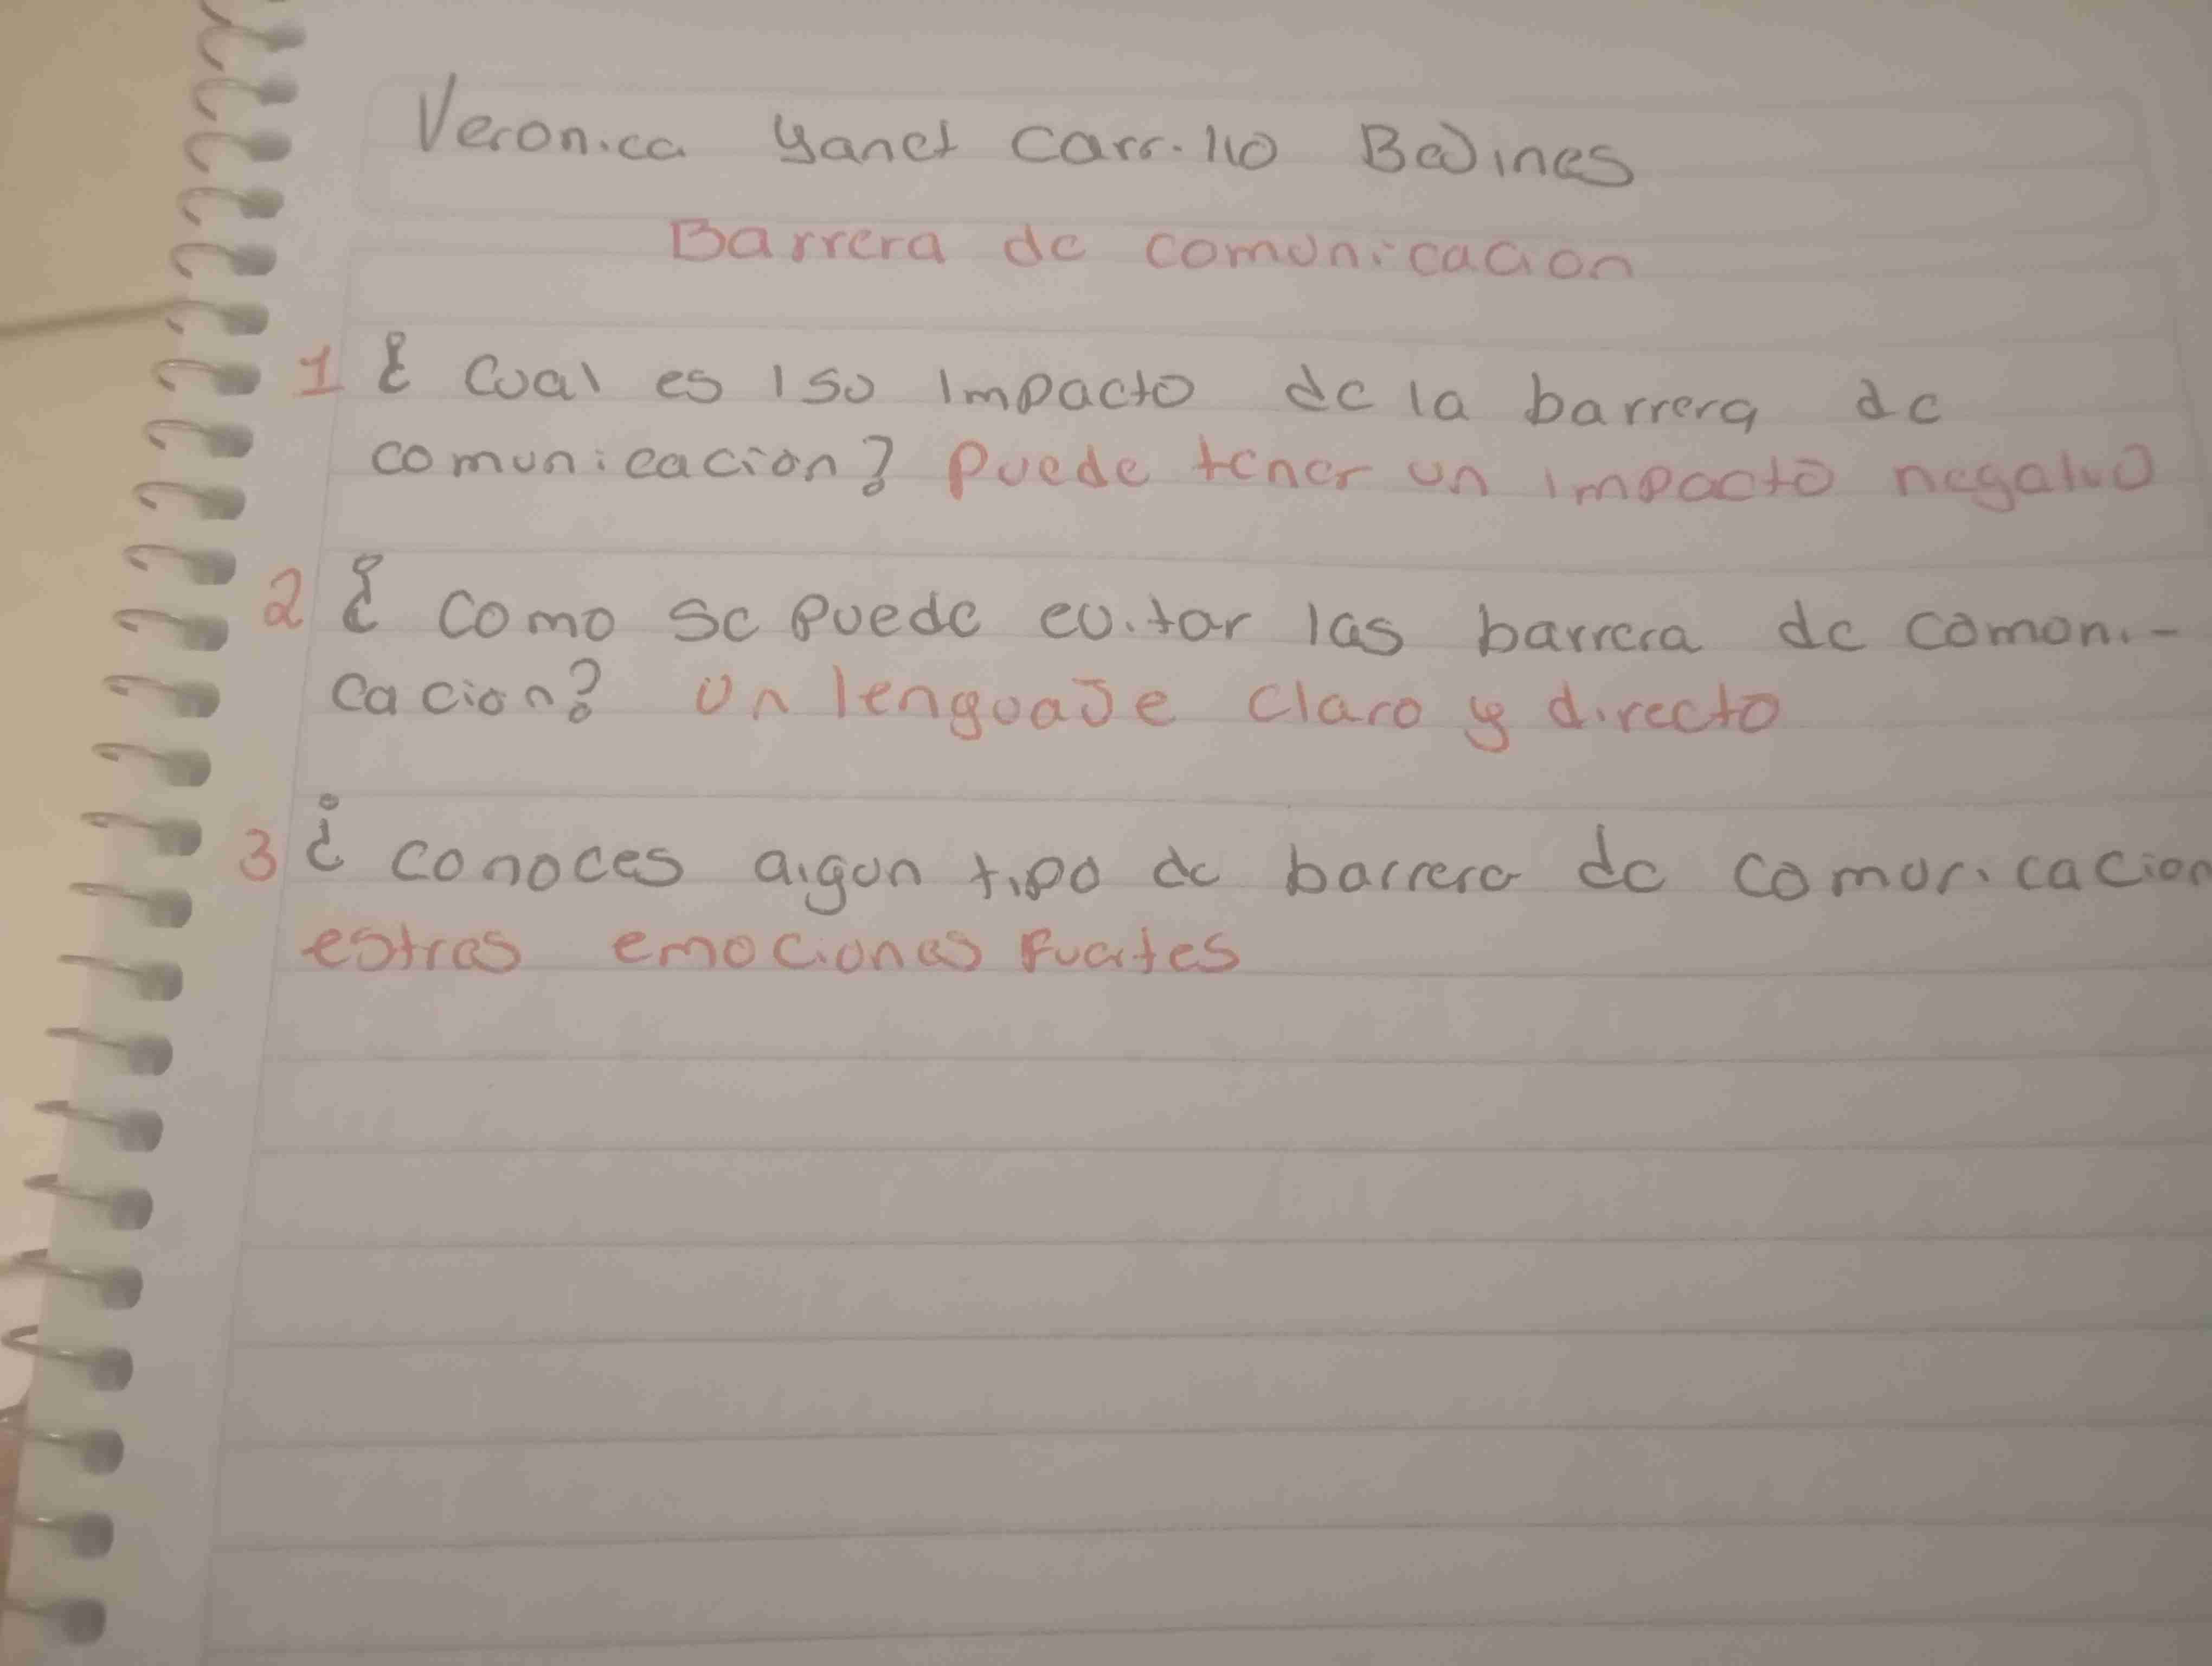 Veronica Yanet Carrillo
Barrera de comunicacion
1 ¿ Cual es su impacto de la barrera de
comunicacion? Puede tener un impacto negativo
2 ¿ Como se puede evitar las barrera de comuni-
cacion? Un lenguaje claro y directo
3 ¿ conoces algun tipo de barrera de comunicacion
estres emociones fuertes